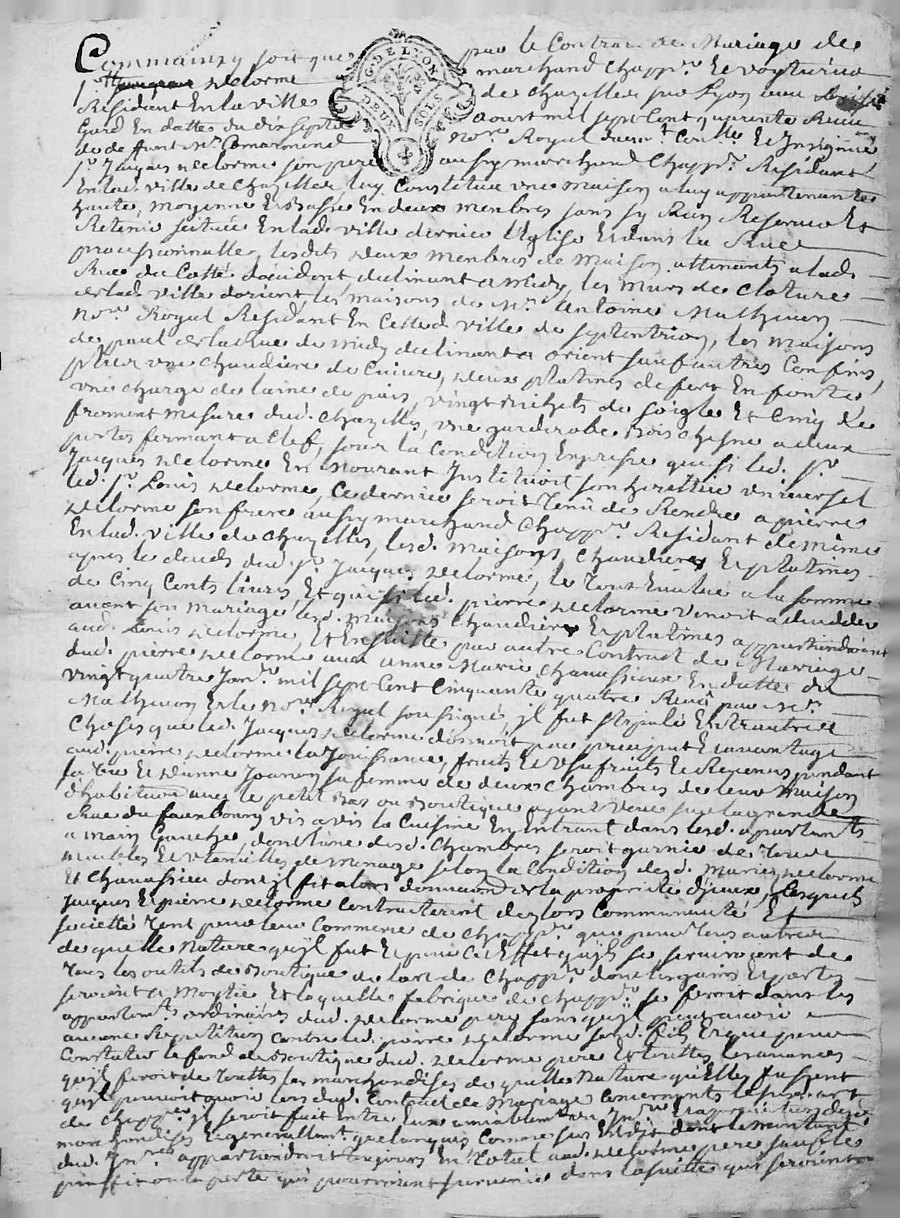 Comme ainsy soit que par le Contrat de Mariage de
sr. Delorme marchand Chappr. Et voyturier
Résident En la ville de Chazelles sur Lyon
En datte du dix sept aoust mil sept Cent quarente
nore. Royal
sr. Jacques Delorme son pere aussy marchand Chappr. Résidant
En lad. ville de Chazelles luy Constitua une maison a luy appartenante
haute, moyenne Et Basse En deux membres sans sy Rien Reserver Et
Retenir située En lad. ville derriere l'Eglise Et dans la Rue
processionnalle, lesdits deux membres de maison attenants a lad.
Rue du Cotté doccident declinant a midy, les murs de cloture
de lad. ville dorient les maisons de Mr. Antoine Mathevon
nore. Royal Résidant En Cette d. ville de septentrion, les maisons
de paul de midy declinant a orient sauf autres Confins,
plus une chaudiere de Cuivre, deux platines de fert En fonte,
une charge de laine de pais, vingt Bichets de soigle Et Cinq de
froment mesure dud. Chazelles, une garderobe Bois chesne a deux
portes fermant a Clef, sous la Condition Expresse que si led. sr.
Jacques Delorme En mourant Instituoit son heretier universel
led. sr. Louis Delorme, Ce dernier seroit tenu de Rendre a pierre
Delorme son frere aussy marchand Chappr. Résidant de même
En lad. ville de Chazelles, lesd. maisons, Chaudieres Et platines
apres le deceds dud. sr. Jacques Delorme, le tout Evalué a la somme
de Cinq Cents livres Et que si led. pierre Delorme venoit a deceder
avant son mariage lesd. maisons Chaudiere Et platines appartiendroient
aud. Louis Delorme, Et Ensuitte par autre Contract de Mariage
dud. pierre Delorme avec anne Marie Chanassieux En datte du
vingt quatre Janr. mil sept Cent Cinquante quatre Reçu par Mr.
Mathevon Et le nore. Royal soussigné, il fut stipulé Entr'autres
Choses que led. Jacques Delorme donnoit par preciput Et avantage
aud. pierre Delorme la Jouissance, fruits Et usufruits Et Revenus pendant
sa vie Et d'anne sa femme de deux Chambres de leur maison
d'habitation avec le petit Bas ou Boutique ayant veue sur la grande
Rue du fauxbourg vis a vis la Cuisine En Entrant dans lesd. apartements
a main Gauche, dont l'une desd. Chambres seroit garnie de tous
meubles Et utencilles de menage selon la Condition desd. mariés Delorme
Et Chanassieu dont il fit alors donnation de la proprieté d'jceux, lesquels
Jacques Et pierre Delorme Contracterent deslors Communauté Et
societté tant pour leur Commerce de Chappr. que pour tous autres
de quelle Nature qu'jl fut Et pour Cet Effet qu'jls se serviroient de
tous les outils de Boutique de l'art de Chappr. dont les gains Et pertes
seroient a Moytié Et laquelle fabrique de Chappr. se feroit dans les
appartemts. ordinaires dud. Delorme pere sans qu'jl peut avoir
aucune Repetition Contre led. pierre Delorme son d. fils Et que pour
Constater le fond de Boutique dud. Delorme pere Et touttes les avances
qu'jl feroit de touttes les marchandises de quelle Nature qu'Elles fussent
qu'jl pouvoit avoir lors dud. Contract de Mariage Concernants led. art
de chappr. jl seroit fait Entre Eux amiablement Inre.
marchandises Et generallemt. quelconques Comme sus Est dit dont le montant
dud. Inre. appartiendroit toujours En total aud. Delorme pere sauf les
proffit ou la perte qui pourroient survenir dans la suitte qui seroient